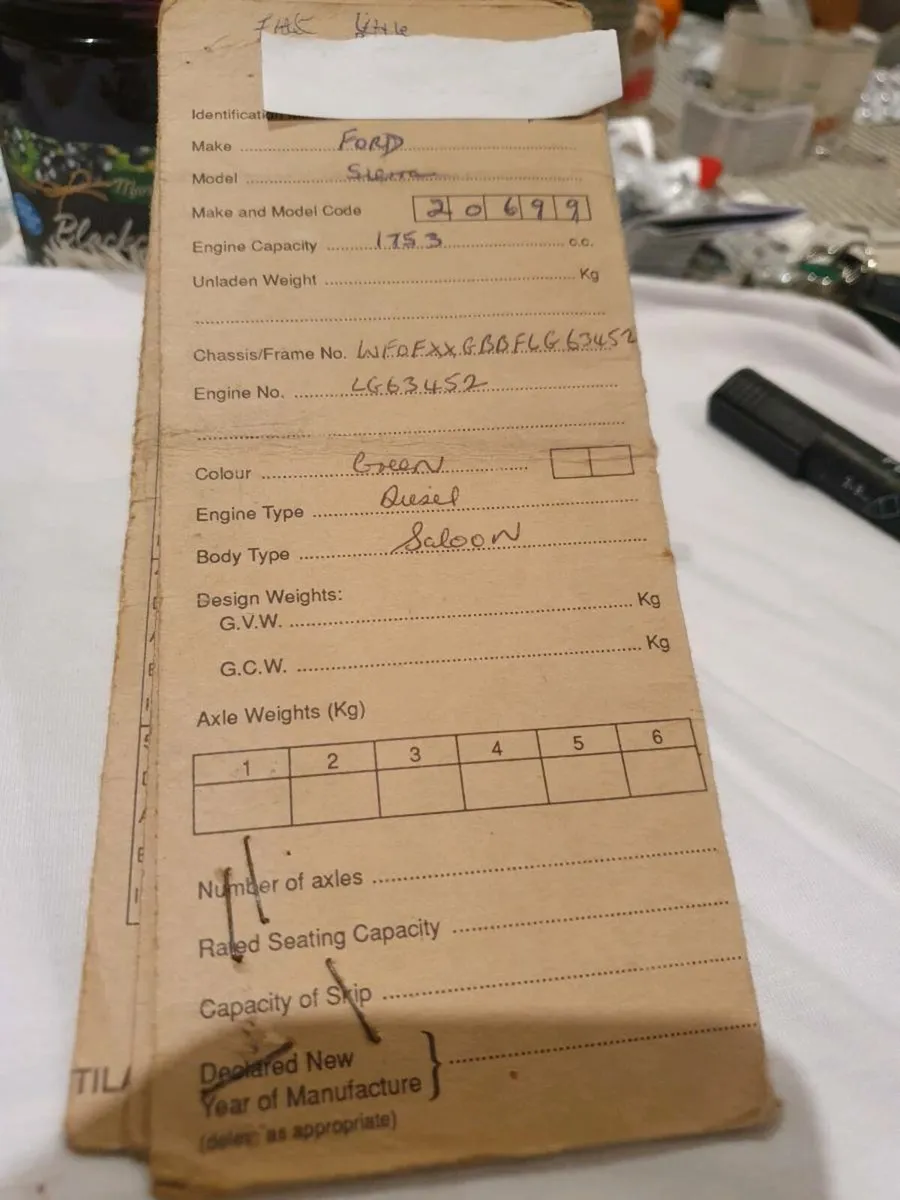 little
Identificati
Make FORD
Model Sierra
Make and Model Code 20699
Engine Capacity 1753 c.c.
Unladen Weight Kg
Chassis/Frame No. WF0FXXGBBFLG63452
Engine No. LG63452
Colour Green
Engine Type Diesel
Body Type Saloon
Design Weights:
G.V.W. Kg
G.C.W. Kg
Axle Weights (Kg)
1 2 3 4 5 6
Number of axles
Rated Seating Capacity
Capacity of Skip
Declared New
Year of Manufacture
(delete as appropriate)
TILA
Blackc